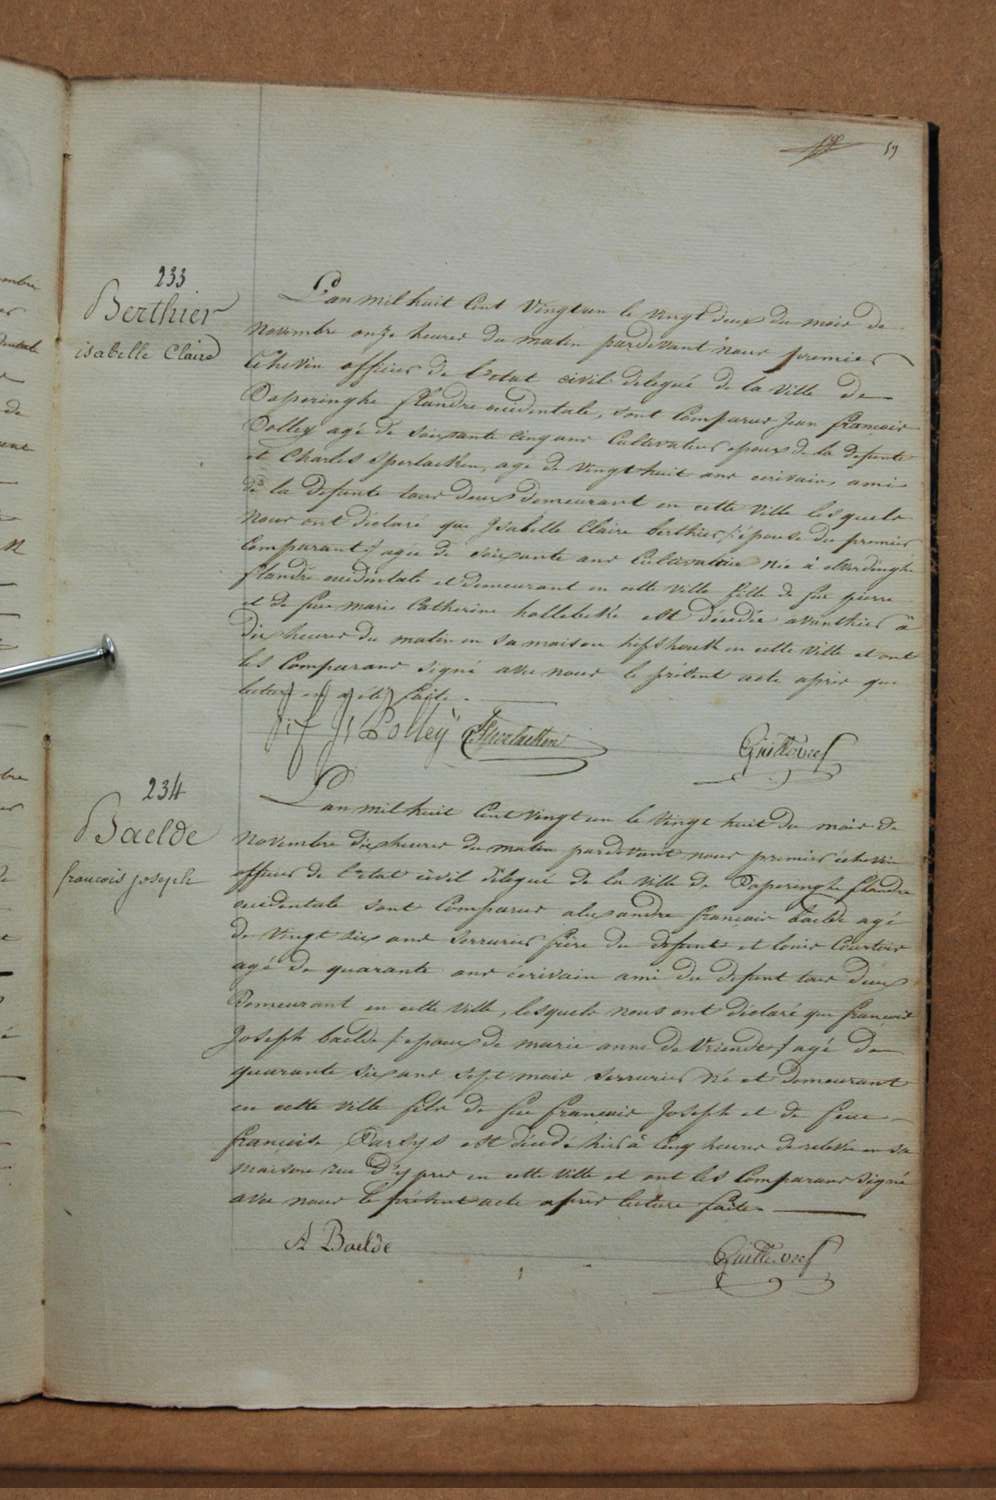 59
233
Berthier
isabelle Claire
L'an mil huit Cent vingt un le vingt deux du mois de
Novembre onze heures du matin pardevant Nous premier
Echevin officier de l'etat civil delegué de la Ville de
Poperinghe flandre occidentale, sont Comparus Jean francois
Dolley agé de soixante cinq ans Cultivateur epoux de la defunte
et Charles Sperlaeken, agé de vingt huit ans ecrivain, ami
de la defunte tous deux demeurant en cette Ville lesquels
Nous ont déclaré que Isabelle Claire berthier / épouse du premier
Comparant / agée de soixante ans Cultivatrice née à
flandre occidentale et demeurant en cette Ville fille de feu pierre
et de feue marie Catherine hollebeke est décédée avanthier à
Dix heures du matin en sa maison en cette Ville et ont
les Comparans signé avec nous le présent acte après que
lecture en a été faite.
J F Dolley CSperlaeken
234
Baelde
francois joseph
L'an mil huit Cent vingt un le vingt huit du mois de
Novembre dix heures du matin pardevant nous premier échevin
officier de l'etat civil délegué de la Ville de Poperinghe flandre
occidentale sont Comparus alexandre françois baelde agé
de Vingt six ans serrurier frère du defunt et louis Courtois
agé de quarante ans ecrivain ami du defunt tous deux
Demeurant en cette Ville, lesquels nous ont déclaré que françois
Joseph baelde / epoux de marie anne de Vriendt / agé de
quarante six ans sept mois serrurier Né et demeurant
en cette Ville fils de feu françois Joseph et de feue
françoise Parsys est décédé hier à Cinq heures de relevée en sa
maison rue d'ypres en cette Ville et ont les Comparans signé
avec nous le présent acte après lecture faite.
A Baelde